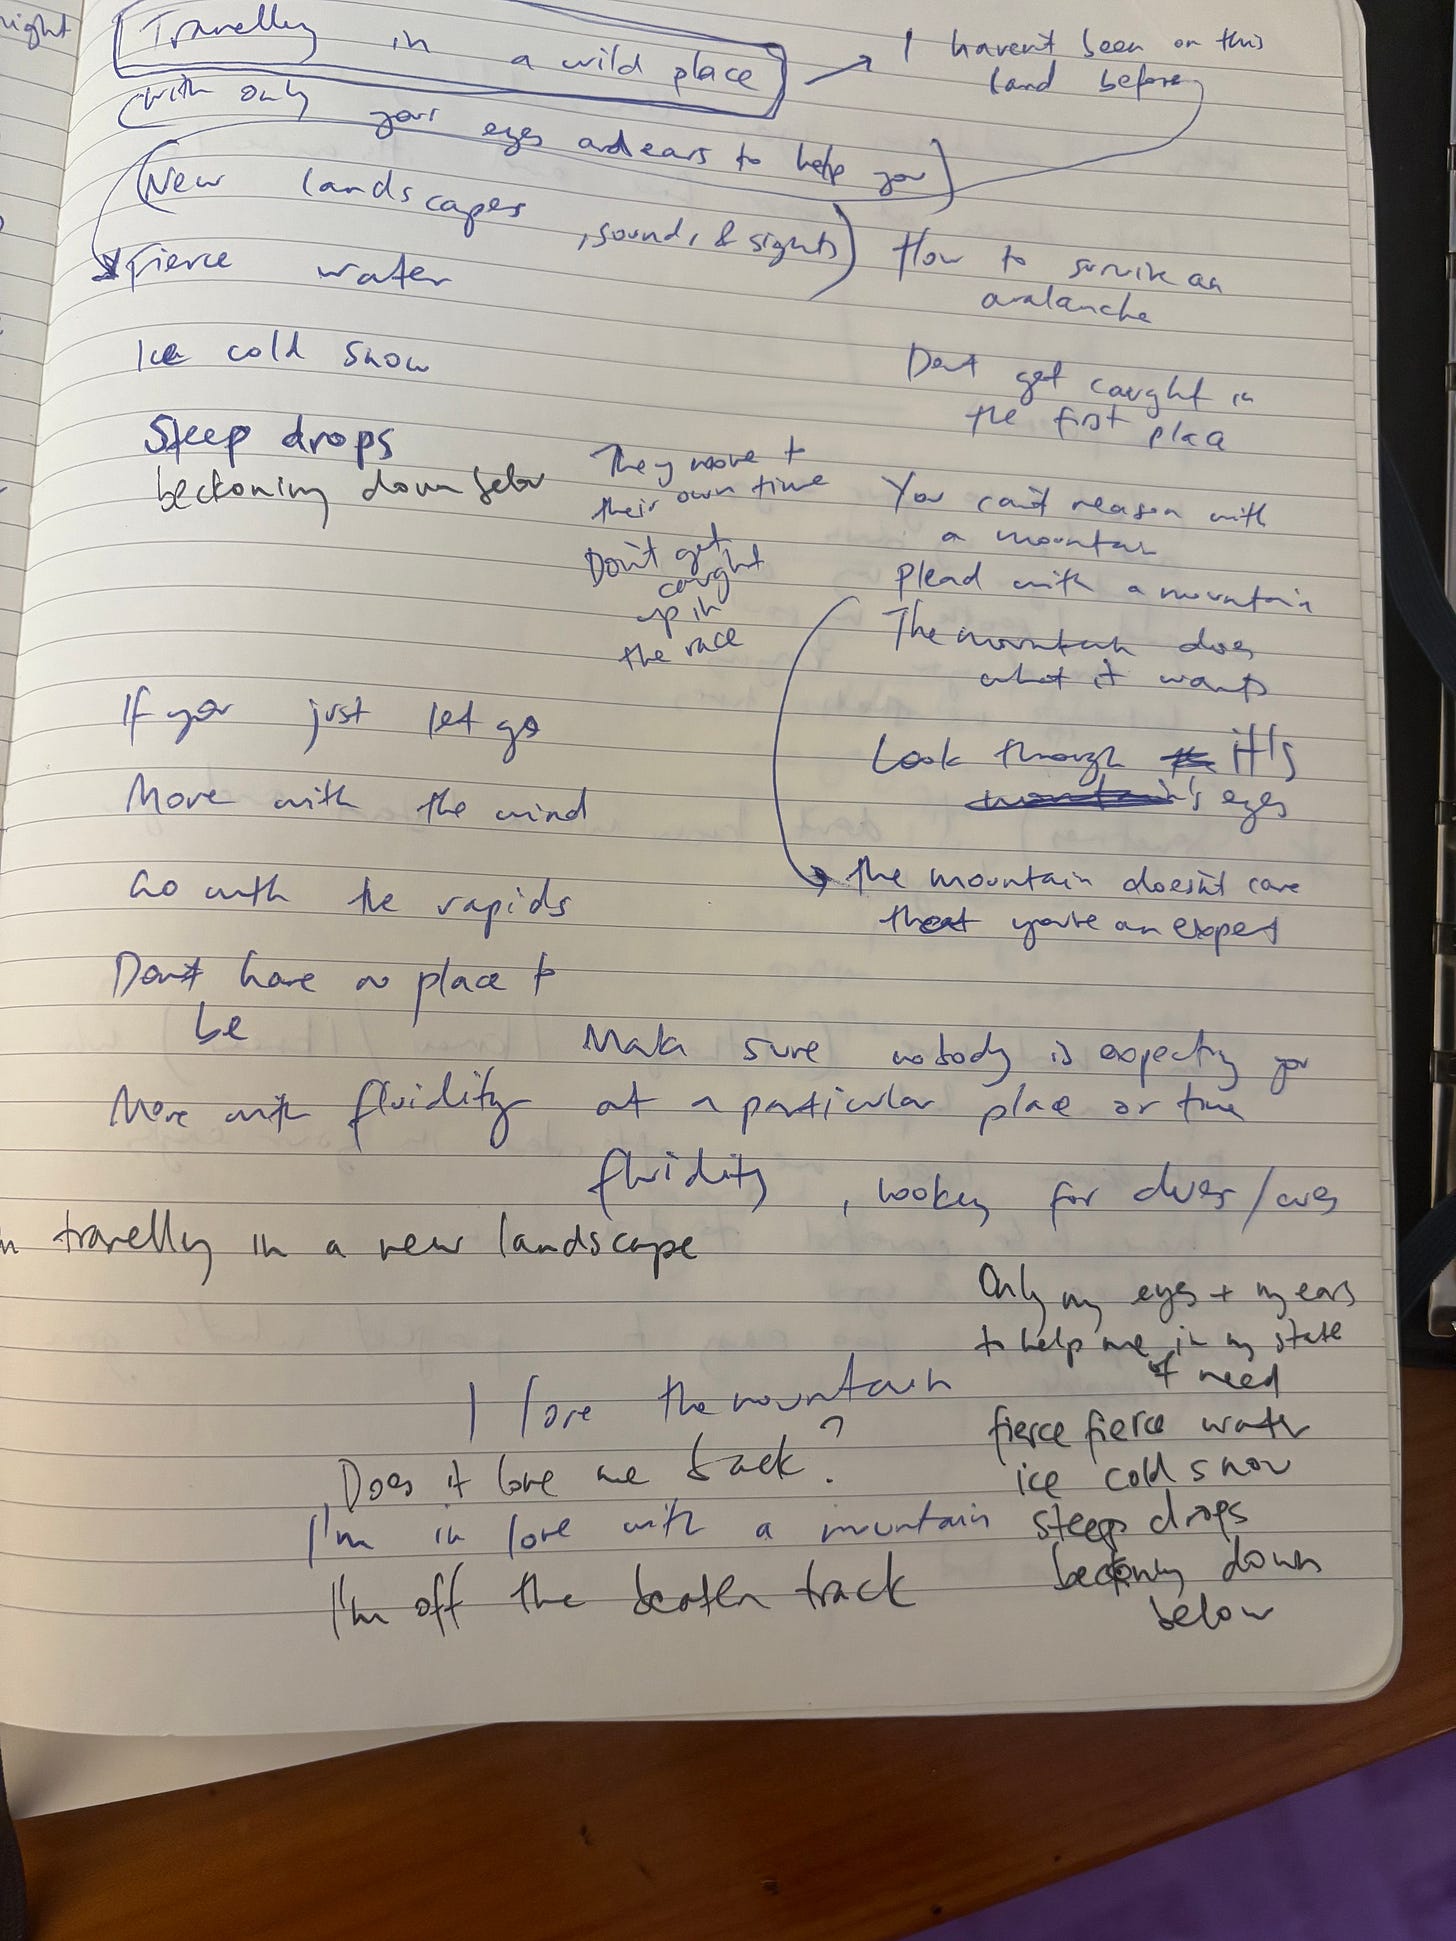 night
Travelling in a wild place
I haven't been on this
land before
with only your eyes and ears to help you
New landscapes, sounds & sights
Fierce water
How to survive an
avalanche
Ice cold snow
Dont get caught in
the first place
Steep drops
beckoning down below
They move to
their own time
Don't get
caught
up in
the race
You can't reason with
a mountain
plead with a mountain
The mountain does
what it wants
Look through it's
mountain's eyes
the mountain doesn't care
that you're an expert
If you just let go
Move with the wind
Go with the rapids
Don't have a place to
be
Make sure nobody is expecting you
at a particular place or time
Move with fluidity
fluidity, looking for clues/cues
travelling in a new landscape
Only my eyes + my ears
to help me in my state
of need
fierce fierce water
ice cold snow
steep drops
beckoning down
below
I love the mountain
Does it love me back?
I'm in love with a mountain
I'm off the beaten track